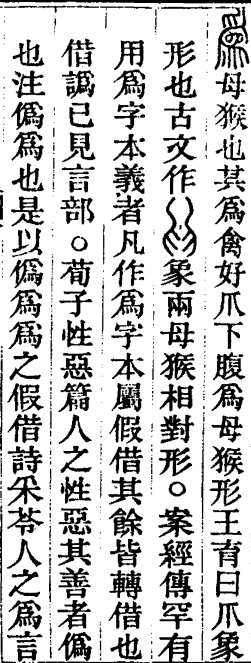 爲母猴也其爲禽好爪下腹爲母猴形王育曰爪象
形也古文作象兩母猴相對形○案經傳罕有
用爲字本義者凡作爲字本屬假借其餘皆轉借也
借譌已見言部○荀子性惡篇人之性惡其善者僞
也注僞爲也是以僞爲爲之假借詩采苓人之爲言